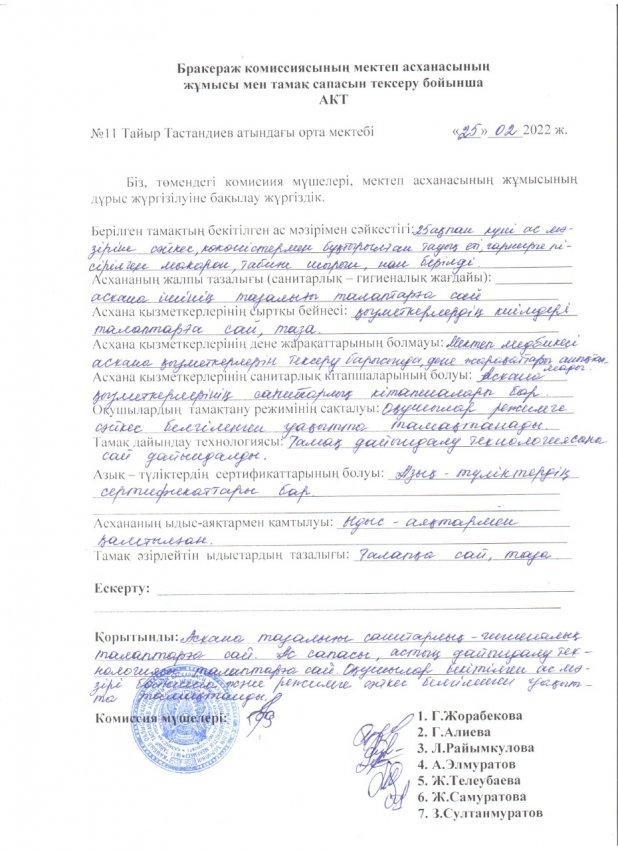 Бракераж комиссиясының мектеп асханасының
жұмысы мен тамақ сапасын тексеру бойынша
АКТ
№11 Тайыр Тастандиев атындағы орта мектебі «25» 02 2022 ж.
Біз, төмендегі комисиия мүшелері, мектеп асханасының жұмысының
дұрыс жүргізілуіне бақылау жүргіздік.
Берілген тамақтың бекітілген ас мәзірімен сәйкестігі: 25 ақпан күні ас мә-
зіріне сәйкес, көкөністермен бұқтырылған тауық еті, гарнирге пі-
сірілген макарон, табиғи шырын, нан берілді.
Асхананың жалпы тазалығы (санитарлық – гигиеналық жағдайы):
асхана ішінің тазалығы талаптарға сай
Асхана қызметкерлерінің сыртқы бейнесі: қызметкерлердің киімдері
талаптарға сай, таза.
Асхана қызметкерлерінің дене жарақаттарының болмауы: Мектеп медбикесі
асхана қызметкерлерін тексеру барысында, дене жарақаттары анықтал-
мады.
Асхана қызметкерлерінің санитарлық кітапшаларының болуы: Асхана
қызметкерлерінің санитарлық кітапшалары бар.
Оқушылардың тамақтану режимінің сақталуы: Оқушылар режимге
сәйкес белгіленген уақытта тамақтанады.
Тамақ дайындау технологиясы: Тамақ дайындау технологиясына
сай дайындалды.
Азық – түліктердің сертификаттарының болуы: Азық - түліктердің
сертификаттары бар.
Асхананың ыдыс-аяқтармен қамтылуы: Ыдыс - аяқтармен
қамтылған.
Тамақ әзірлейтін ыдыстардың тазалығы: Талапқа сай, таза
Ескерту:
Қорытынды: Асхана тазалығы санитарлық - гигиеналық
талаптарға сай. Ас сапасы, астың дайындау тех-
нологиясы талаптарға сай. Оқушылар бекітілген ас мә-
зірі бойынша және режимге сәйкес белгіленген уақыт-
та тамақтанды.
Комиссия мүшелері:
1. Г.Жорабекова
2. Г.Алиева
3. Л.Райымкулова
4. А.Элмуратов
5. Ж.Телеубаева
6. Ж.Самуратова
7. З.Султанмуратов